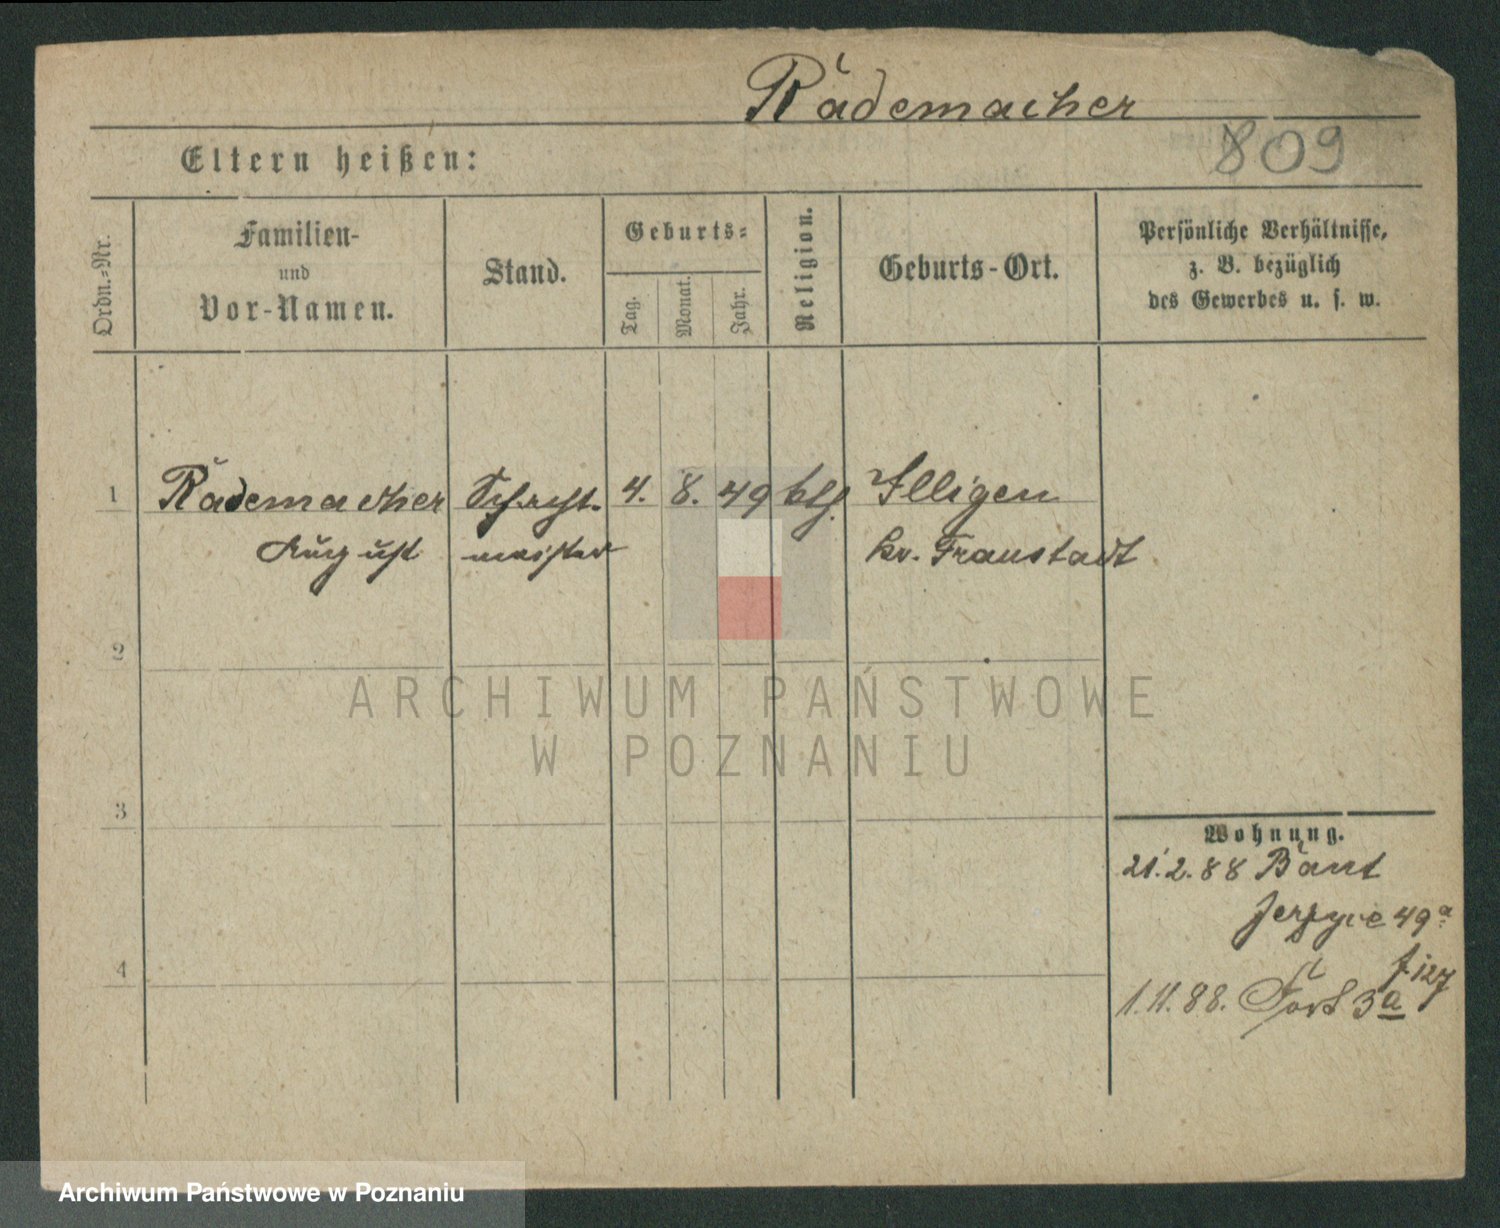 Rademacher
809
Eltern heißen:
Ordn.-Nr.
Familien-
und
Vor-Namen.
Stand.
Geburts-
Tag.
Monat.
Jahr.
Religion.
Geburts-Ort.
Persönliche Verhältnisse,
z. B. bezüglich
des Gewerbes u. s. w.
1 Rademacher Schacht- 4. 8. 49 kth. Illigen
August meister Kr. Fraustadt
2
3
4
Wohnung.
21.2.88 Bant
Jerzyce 49a
f 127
1.11.88. Fort 3a
ARCHIWUM PAŃSTWOWE
W POZNANIU
Archiwum Państwowe w Poznaniu